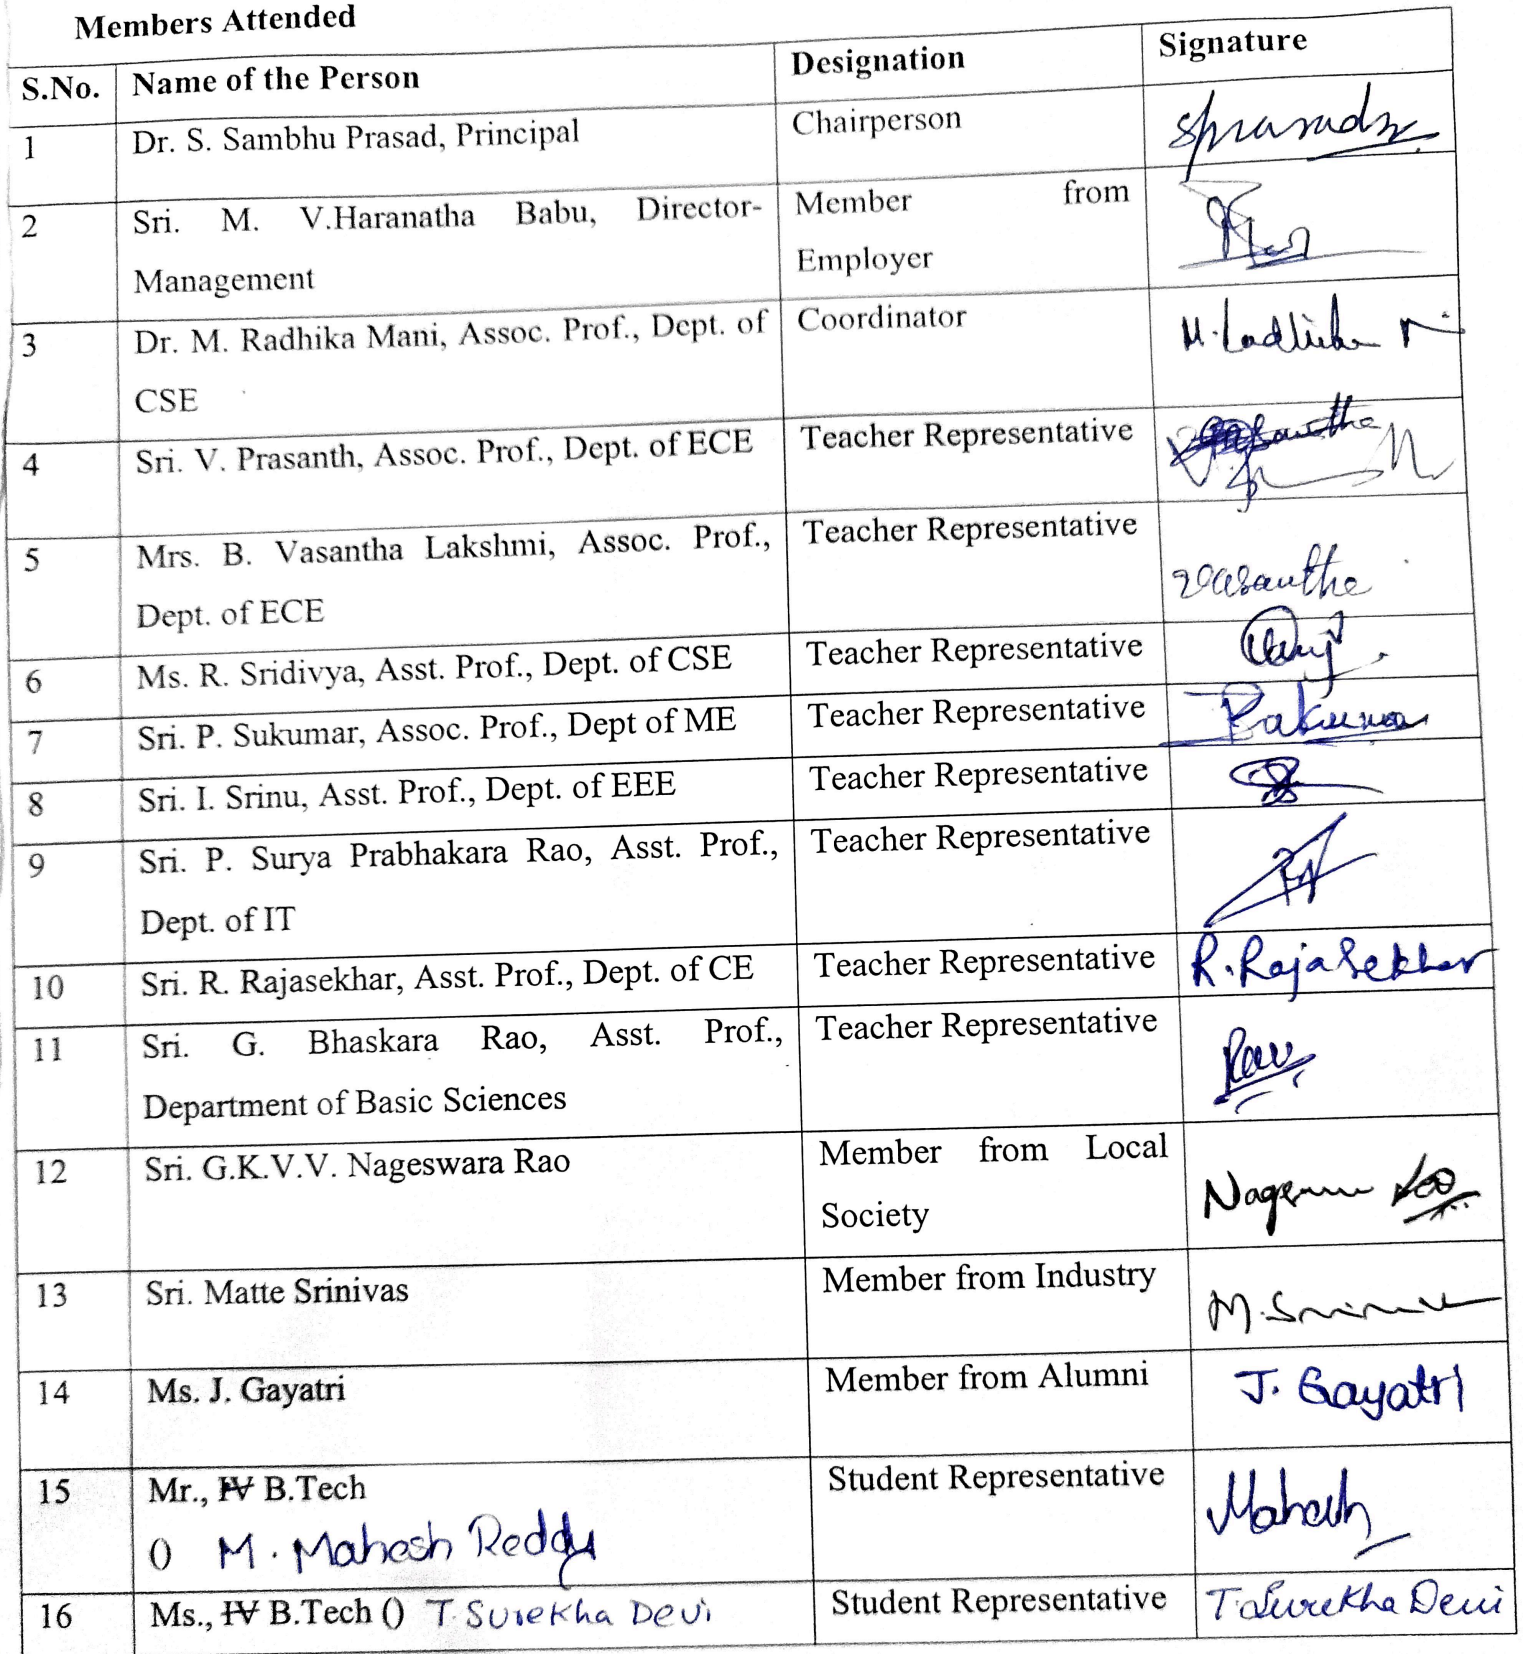 Members Attended
S.No. Name of the Person Designation Signature
1 Dr. S. Sambhu Prasad, Principal Chairperson Sprasad
2 Sri. M. V.Haranatha Babu, Director- Member from
Management Employer
3 Dr. M. Radhika Mani, Assoc. Prof., Dept. of Coordinator M. Radhika
CSE
4 Sri. V. Prasanth, Assoc. Prof., Dept. of ECE Teacher Representative
5 Mrs. B. Vasantha Lakshmi, Assoc. Prof., Teacher Representative
Dept. of ECE Vasantha
6 Ms. R. Sridivya, Asst. Prof., Dept. of CSE Teacher Representative
7 Sri. P. Sukumar, Assoc. Prof., Dept of ME Teacher Representative
8 Sri. I. Srinu, Asst. Prof., Dept. of EEE Teacher Representative
9 Sri. P. Surya Prabhakara Rao, Asst. Prof., Teacher Representative
Dept. of IT
10 Sri. R. Rajasekhar, Asst. Prof., Dept. of CE Teacher Representative R. RajaSekhar
11 Sri. G. Bhaskara Rao, Asst. Prof., Teacher Representative Rao
Department of Basic Sciences
12 Sri. G.K.V.V. Nageswara Rao Member from Local
Society Nageswara Rao
13 Sri. Matte Srinivas Member from Industry M. Srinivas
14 Ms. J. Gayatri Member from Alumni J. Gayatri
15 Mr., IV B.Tech Student Representative Mahesh
() M. Mahesh Reddy
16 Ms., IV B.Tech () T. Surekha Devi Student Representative T. Surekha Devi